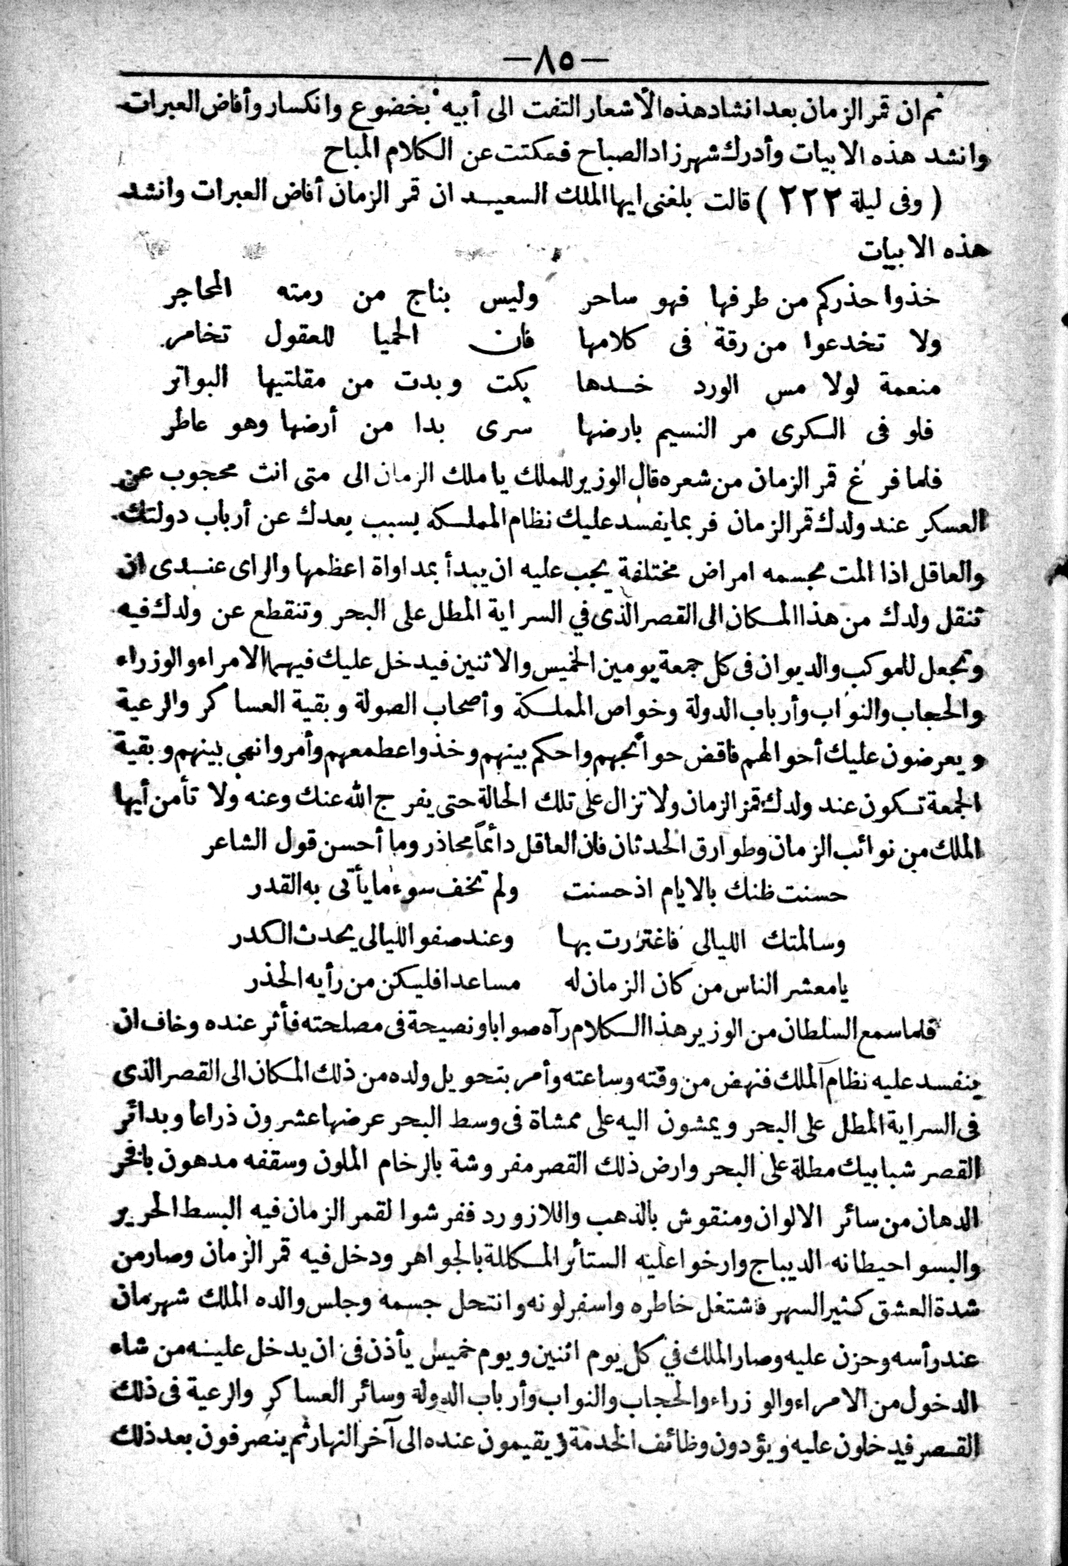 —٨٥—
ثم ان قمر الزمان بعد انشاد هذه الاشعار التفت الى أبيه بخضوع وانكسار وأفاض العبرات
وانشد هذه الابيات وأدرك شهرزاد الصباح فسكتت عن الكلام المباح
(وفى ليلة ٢٢٣) قالت بلغنى ايها الملك السعيد ان قمر الزمان أفاض العبرات وانشد
هذه الابيات
خذوا حذركم من طرفها فهو ساحر وليس بناج من رمته المحاجر
ولا تخدعوا من رقة فى كلامها فان الحميا للعقول تخامر
منعمة لولا مس الورد خدها بكت وبدت من مقلتيها البواتر
فلو فى الكرى مر النسيم بارضها سرى بدا من أرضها وهو عاطر
فلما فرغ قمر الزمان من شعره قال الوزير للملك يا ملك الزمان الى متى انت محجوب عن
العسكر عند ولدك قمر الزمان فربما يفسد عليك نظام المملكة بسبب بعدك عن أرباب دولتك
والعاقل اذا المت بجسمه امراض مختلفة يجب عليه ان يبدأ بمداواة اعظمها والراى عندى ان
تنقل ولدك من هذا المكان الى القصر الذى في السراية المطل على البحر وتنقطع عن ولدك فيه
وتجعل للموكب والديوان فى كل جمعة يومين الخميس والاثنين فيدخل عليك فيهما الامراء والوزراء
والحجاب والنواب وأرباب الدولة وخواص المملكة وأصحاب الصولة وبقية العساكر والرعية
ويعرضون عليك أحوالهم فاقض حوائجهم واحكم بينهم وخذ واعط معهم وأمر وانهى بينهم وبقية
الجمعة تكون عند ولدك قمر الزمان ولا تزال على تلك الحالة حتى يفرج الله عنك وعنه ولا تأمن أيها
الملك من نوائب الزمان وطوارق الحدثان فان العاقل دائما محاذر وما أحسن قول الشاعر
حسنت ظنك بالايام اذ حسنت ولم تخف سوء ما يأتى به القدر
وسالمتك الليالى فاغتررت بها وعند صفو الليالى يحدث الكدر
يا معشر الناس من كان الزمان له مساعدا فليكن من رأيه الحذر
فلما سمع السلطان من الوزير هذا الكلام رآه صوابا ونصيحة فى مصلحته فأثر عنده وخاف ان
ينفسد عليه نظام الملك فنهض من وقته وساعته وأمر بتحويل ولده من ذلك المكان الى القصر الذى
فى السراية المطل على البحر ويمشون اليه على ممشاة فى وسط البحر عرضها عشرون ذراعا وبدائر
القصر شبابيك مطلة على البحر وارض ذلك القصر مفروشة بالرخام الملون وسقفه مدهون بافخر
الدهان من سائر الالوان ومنقوش بالذهب واللازورد ففرشوا لقمر الزمان فيه البسط الحرير
والبسوا حيطانه الديباج وارخوا عليه الستائر المكللة بالجواهر ودخل فيه قمر الزمان وصار من
شدة العشق كثير السهر فاشتغل خاطره واسفر لونه وانتحل جسمه وجلس والده الملك شهرمان
عند رأسه وحزن عليه وصار الملك في كل يوم اثنين ويوم خميس يأذن فى ان يدخل عليه من شاء
الدخول من الامراء والوزراء والحجاب والنواب وأرباب الدولة وسائر العساكر والرعية فى ذلك
القصر فيدخلون عليه ويؤدون وظائف الخدمة ويقيمون عنده الى آخر النهار ثم ينصرفون بعد ذلك